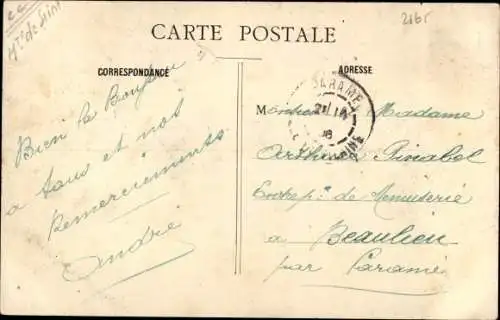 2165
CARTE POSTALE
CORRESPONDANCE
ADRESSE
Bien le Bonjour
a tous et nos
Remerciements
André
PARAMÉ
21
Monsieur Madame
Arthur Pinabel
Entrep.r de Menuiserie
a Beaulieu
par Paramé